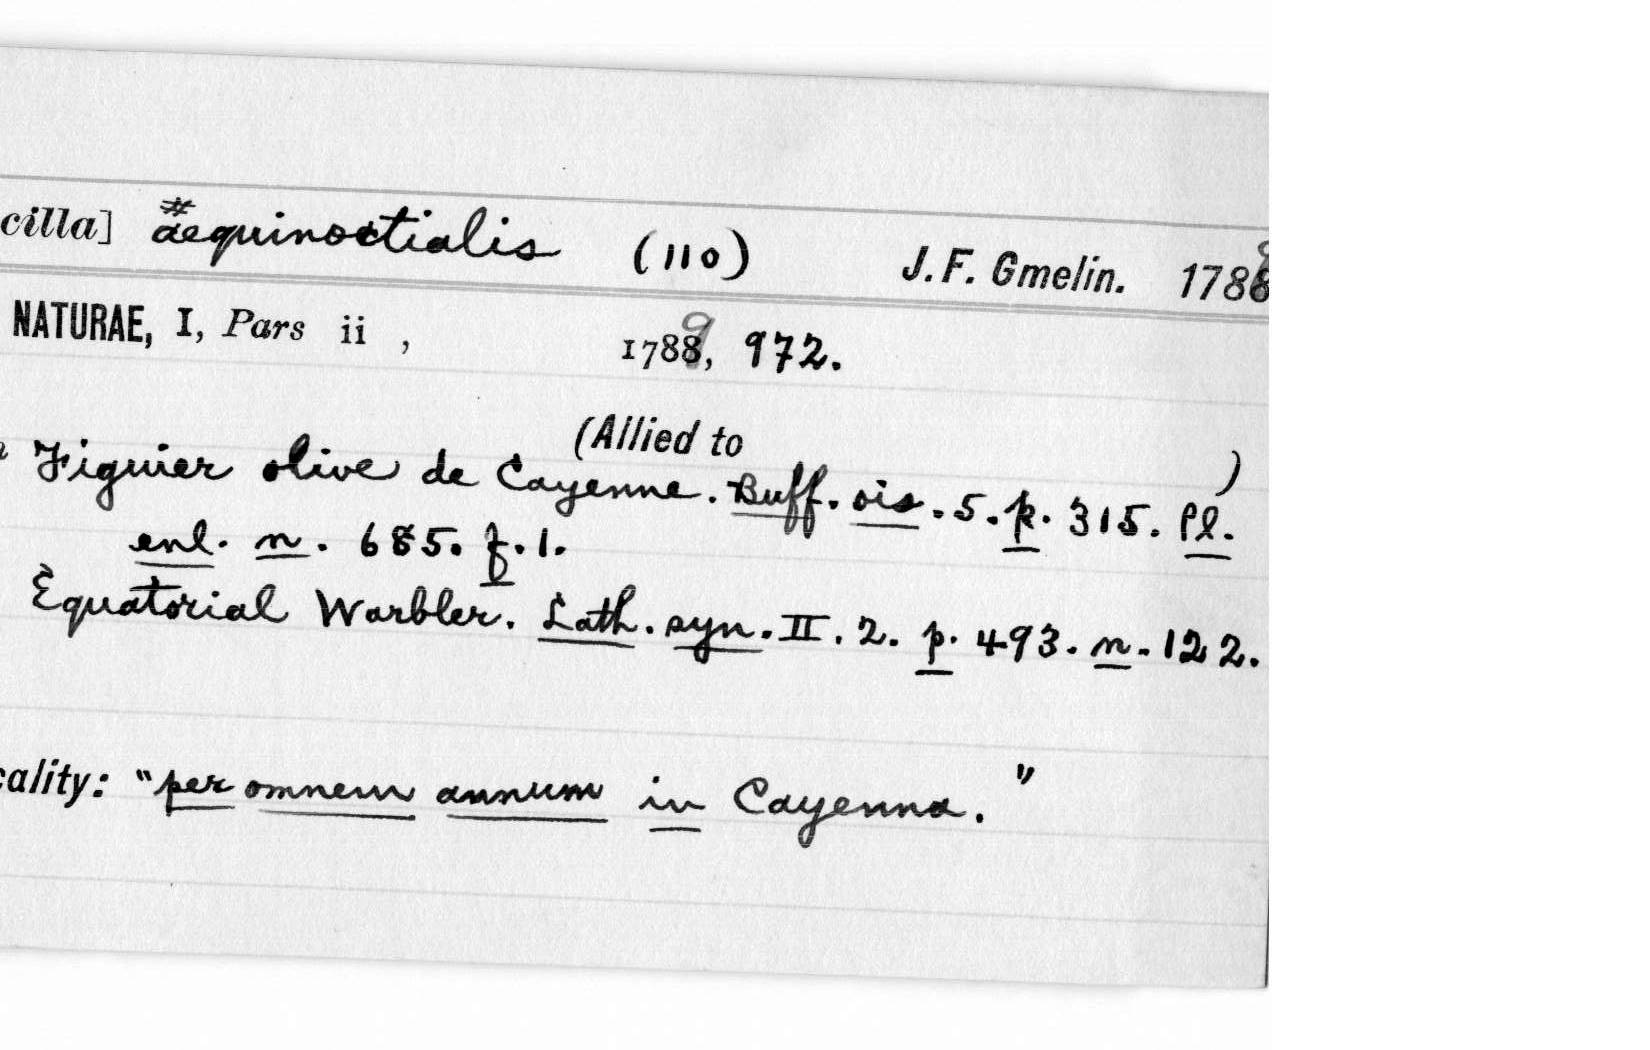 cilla] #aequinoctialis (110) J. F. Gmelin. 1788
NATURAE, I, Pars ii , 1789, 972.
(Allied to )
Figuier olive de Cayenne. Buff. ois. 5. p. 315. Pl.
enl. n. 685. f. 1.
Equatorial Warbler. Lath. syn. II. 2. p. 493. n. 122.
cality: "per omnem annum in Cayenna."